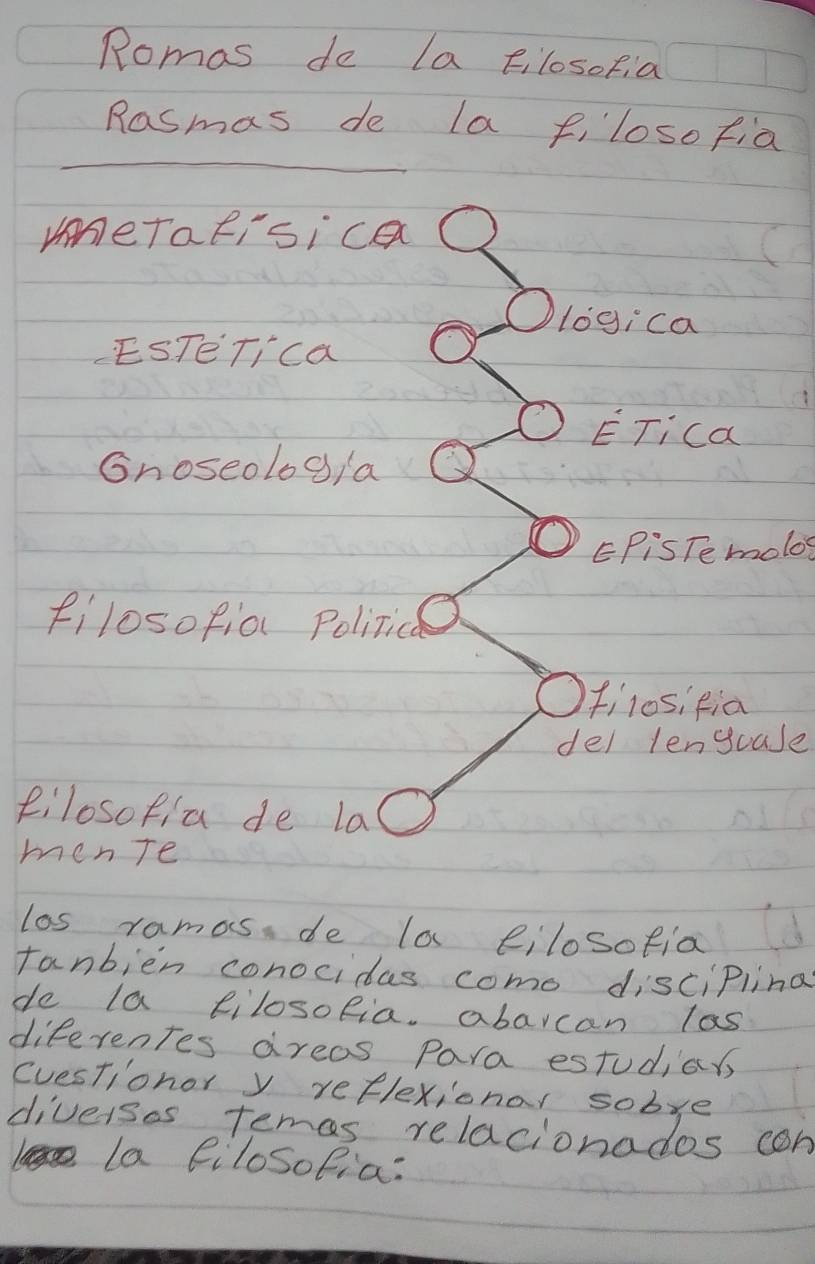 Romas de la filosofia
Rasmas de la filosofia
metafísica
lógica
ESTÉTica
ÉTica
Gnoseología
EPisTemolog
filosofia PolíTica
filosifia
del lenguaJe
filosofía de la
menTe
las ramas de la filosofia
Tanbién conocidas como disciPlinas
de la filosofia. abarcan las
diferenTes áreas Para esTudiar,
cuesTionar y reflexionar sobre
diversos Temas relacionados con
la filosofia: